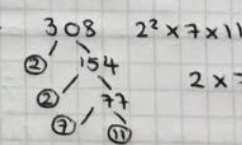 308 2² × 7 × 11
2 154
2 × 7
2 77
7 11